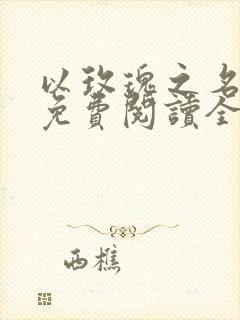 以玫瑰之名
免費閱讀全
西樵